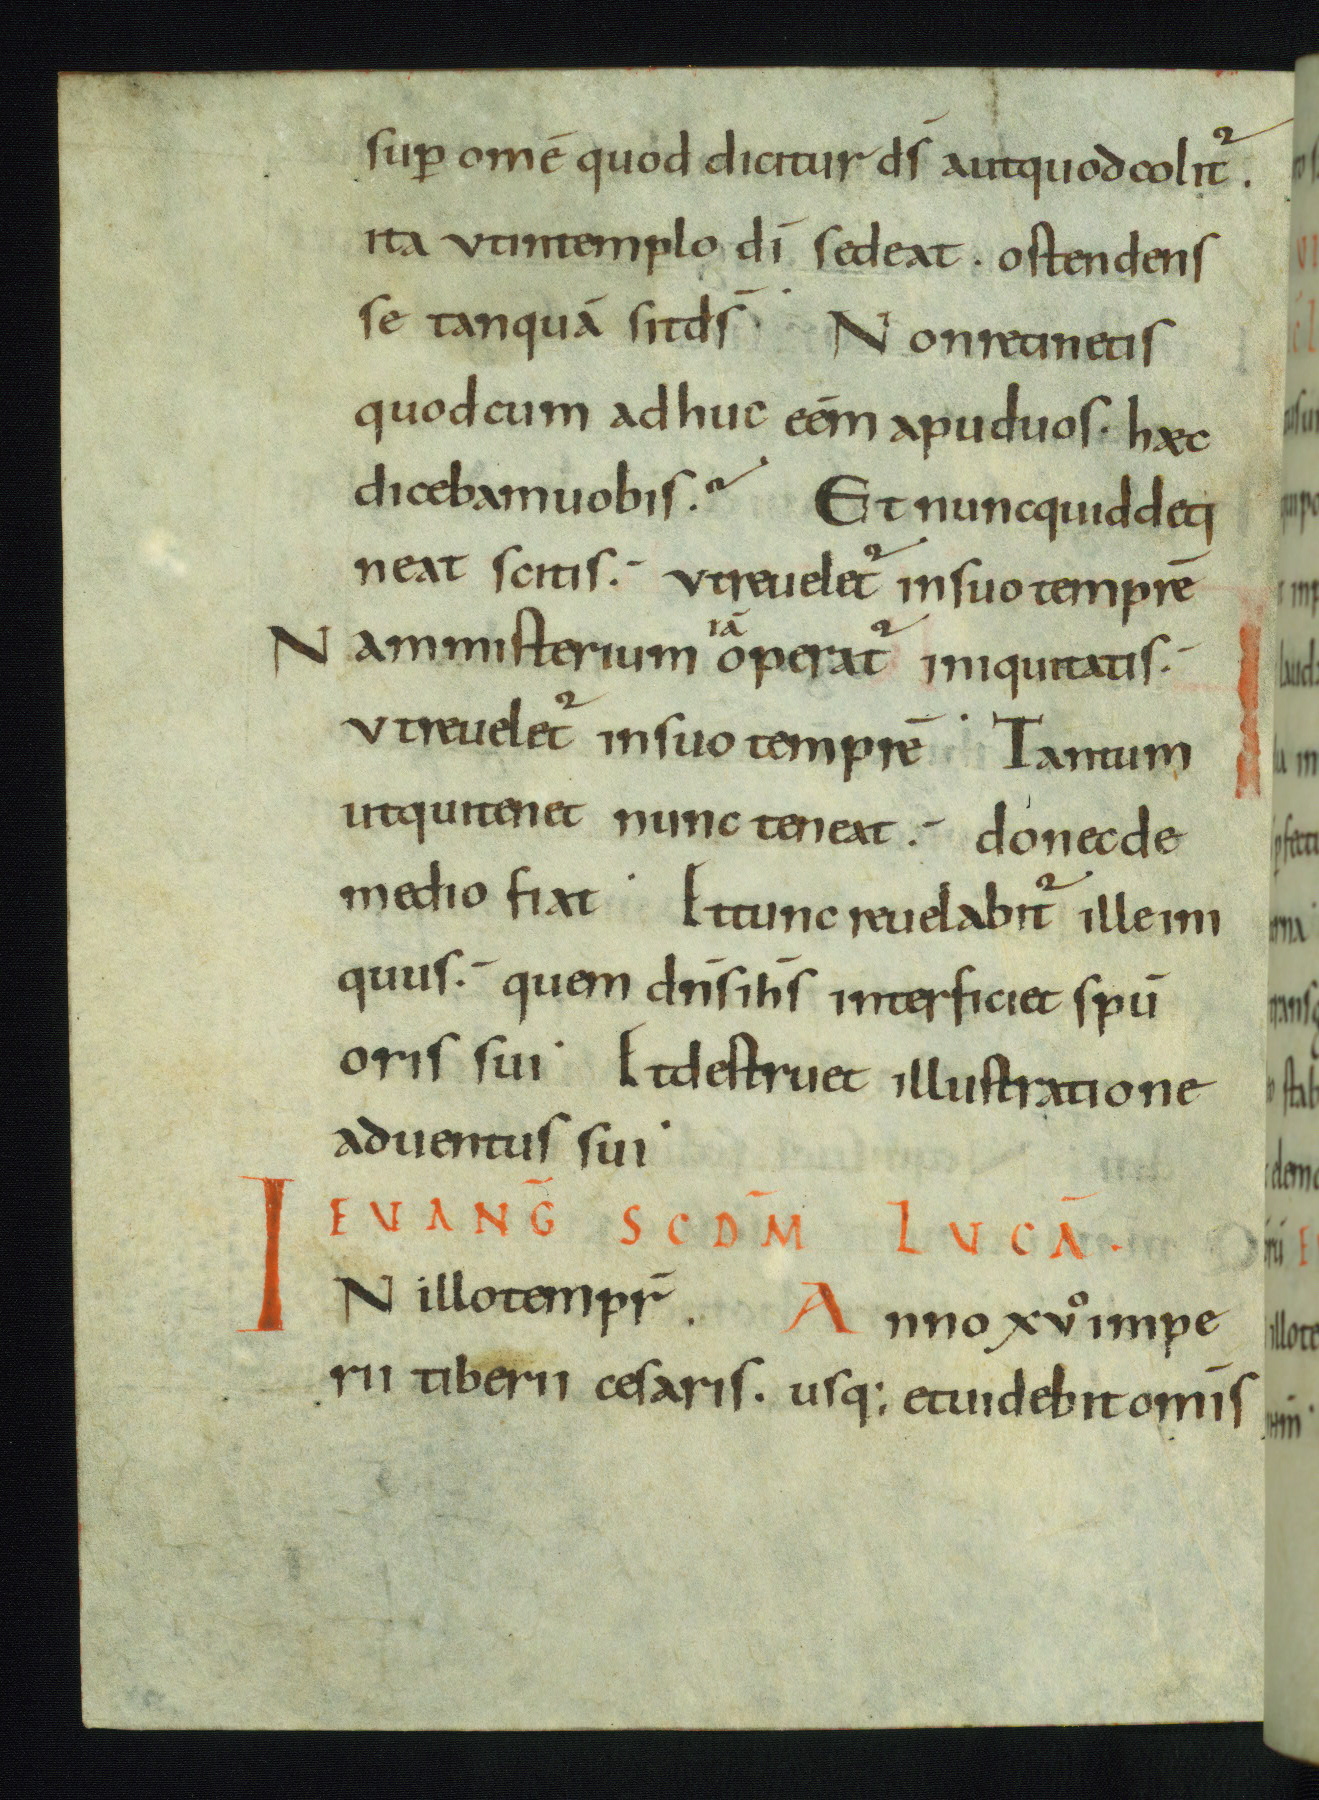 sup̄ om̄e quod dicitur dς̄ autquodcolit᷒.
ita vtintemplo dī sedeat . ostendens
se tanquā sitds̄ · Nonretinetis
quodcum adhuc eēm apuduos· hæc
dicebamuobis. Et nuncquiddeti
neat scitis. vtreuelet᷒ insuotemprē
Nammisterium iā operat᷒ iniquitatis.
vtreuelet᷒ insuo temprē · Tantum
utquitenet nunc teneat . donecde
medio fiat · Ettunc reuelabit᷒ ille ini
quus. quem dn̄sih̄s interficiet spū
oris sui · Etdestruet illustratione
aduentus sui ·
EVANḠ SCDM̄ LVCĀ .
IN illotempr̄ . Anno xv̊impe
rii tiberii cesaris. usq; etuidebitomīs